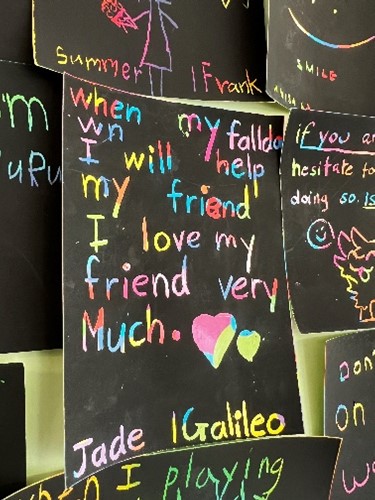 Summer 1Frank
SMILE
m
uRu
when
wn my falldo
I will help
my friend
I love my
friend very
Much.
Jade 1Galileo
if you ar
hesitate to
doing so. is
Don't
on
wa
when I playing